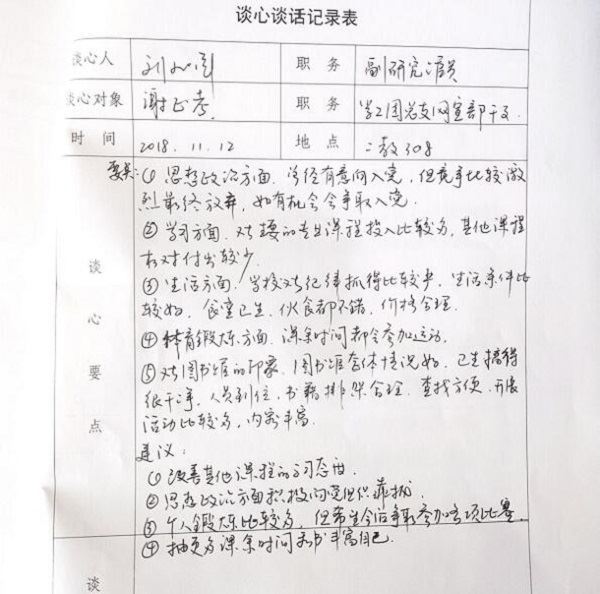 谈心谈话记录表
谈心人 职务 副研究馆员
谈心对象 谢正考 职务 学工团总支网宣部干事
时间 2018.11.12 地点 二教308
要点：① 思想政治方面，曾经有意向入党，但竞争比较激
烈最终放弃，如有机会会争取入党。
② 学习方面，对主要的专业课程投入比较多，其他课程
相对付出较少。
③ 生活方面，学校对纪律抓得比较严，生活条件比
较好，食堂卫生、伙食都不错，价格合理。
④ 体育锻炼方面，课余时间都会参加运动。
⑤ 对图书馆的印象，图书馆整体情况好，卫生搞得
很干净，人员到位，书籍排架合理，查找方便，开展
活动比较多，内容丰富。
建议：
① 改善其他课程的学习态度。
② 思想政治方面积极向党组织靠拢。
③ 个人锻炼比较多，但希望今后争取参加各项比赛。
④ 抽更多课余时间看书丰富自己。
谈心要点
谈